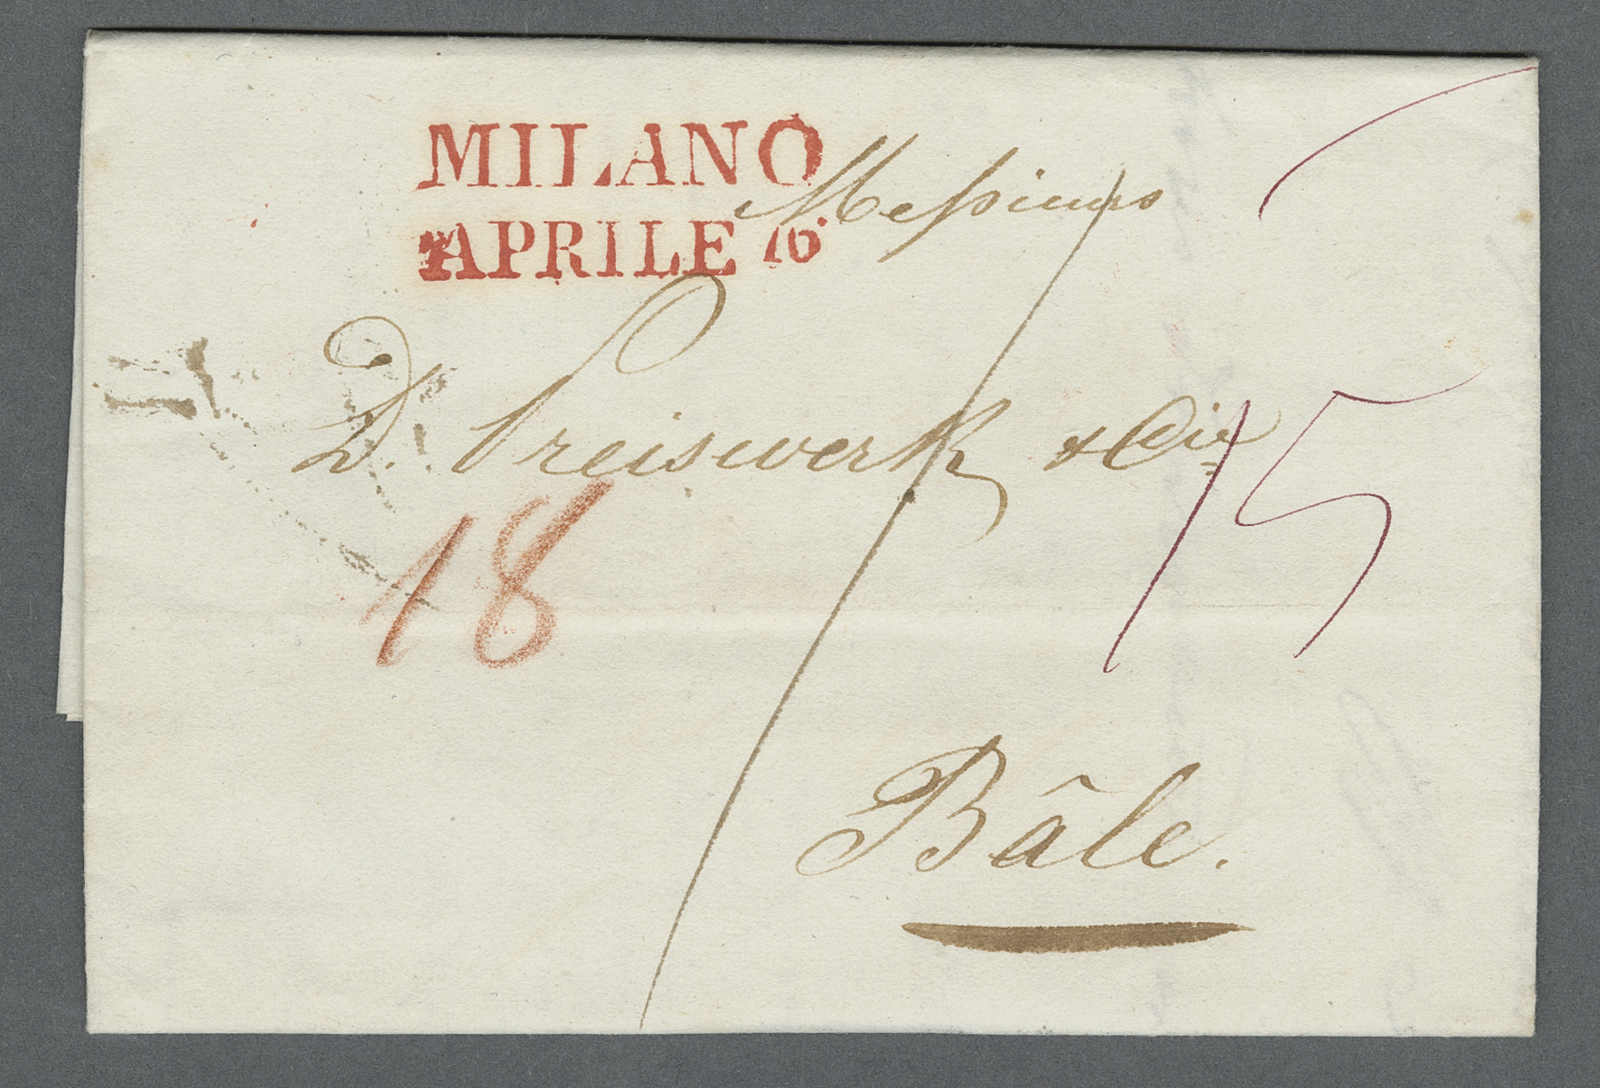 MILANO
APRILE 16
Messieurs
D. Preiswerk & Cie
18
15
Bâle.